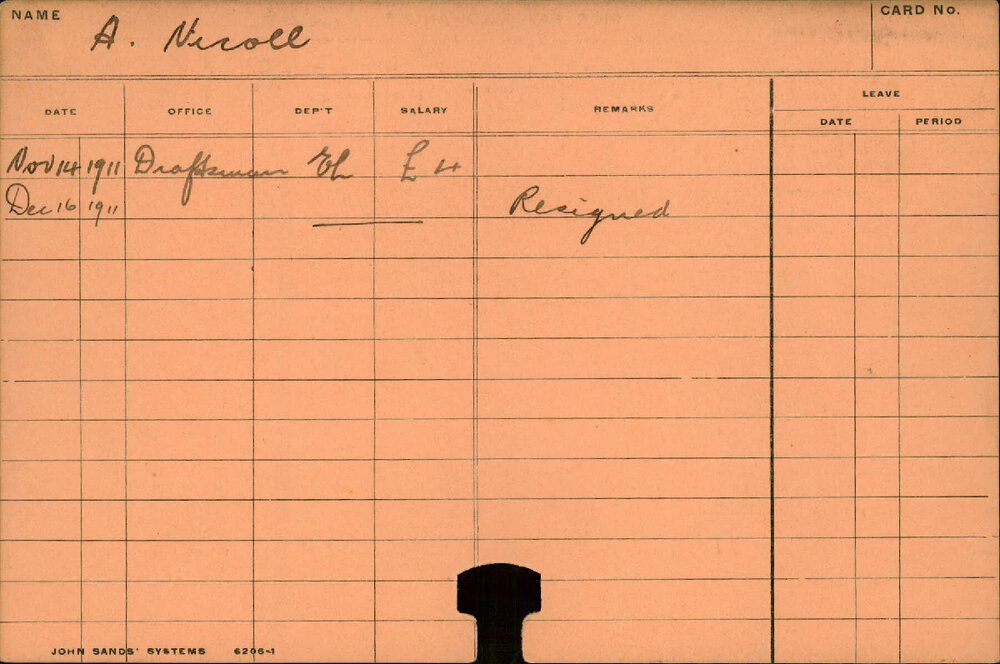 NAME A. Nicoll CARD No.
LEAVE
DATE OFFICE DEP'T SALARY REMARKS DATE PERIOD
Nov 14 1911 Draftsman EL £4
Dec 16 1911 Resigned
JOHN SANDS' SYSTEMS 6206-1